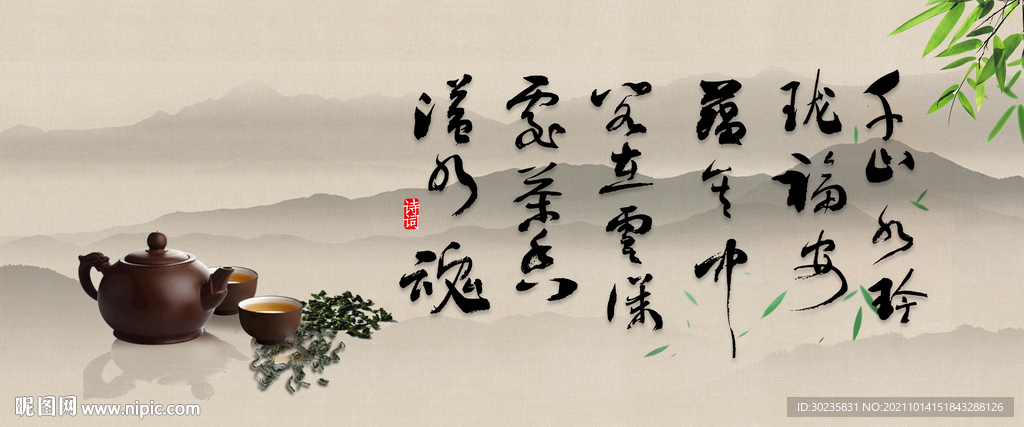 千山水玲
珑福安
蕴其中
茗在雲深
處茶香
溢水魂
诗词
昵图网 www.nipic.com
ID:30235831 NO:20211014151843288126